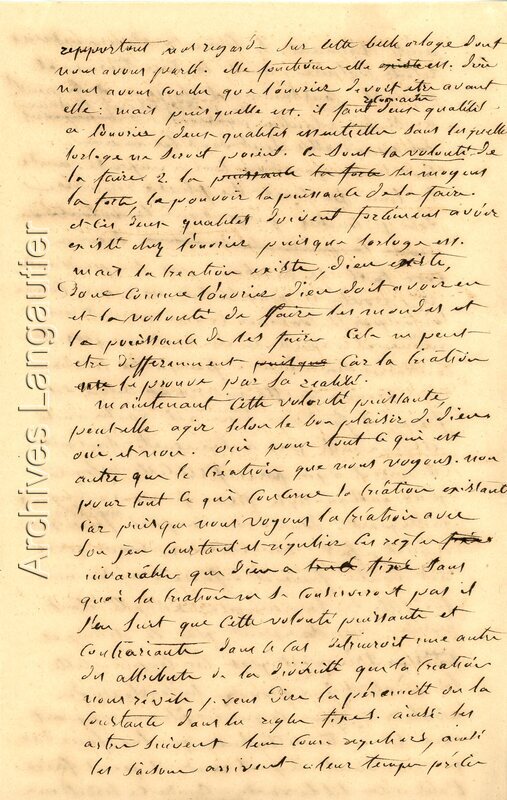 repportons nos regards sur cette belle orloge dont
nous avons parlé. elle fonctionne elle existe est. d'où
nous avons conclu que l'ouvrier devoit être avant
elle: mais puisquelle est. il faut reconnaitre deux qualités
a l'ouvrier, deux qualités essentielles sans lesquelles
lorloge ne seroit point. Ce sont la volonté de
la faire. 2. la puissante la forte les moyens
la forte, le pouvoir la puissance de la faire.
et ces deux qualités doivent forcément avoir
existé chez l'ouvrier puisque lorloge est.
mais la creation existe, dieu existe,
Donc comme l'ouvrier dieu doit avoir eu
et la volonté de faire les mondes et
la puissante de les faire. Cela ne peut
etre differemment puisque Car la création
le prouve par sa realité.
maintenant cette volonté puissante,
peut elle agir selon le bon plaisir de dieu
oui, et non. oui pour tout ce qui est
autre que la création que nous voyons. non
pour tout ce qui concerne la création existant
Car puisque nous voyons la création avec
son jeu constant et régulier ces regles
invariables que dieu a fixé sans
quoi la création ne se conserveroit pas il
s'en suit que cette volonté puissante et
contrariante dans ce cas detruiroit une autre
des attributs de la divinité que la création
nous révèle, je veux dire la pérennité ou la
constante dans les regles fixes. ainsi les
astres suivent leur cours reguliers, ainsi
les saisons arrivent à leur temps précis
Archives Langautier